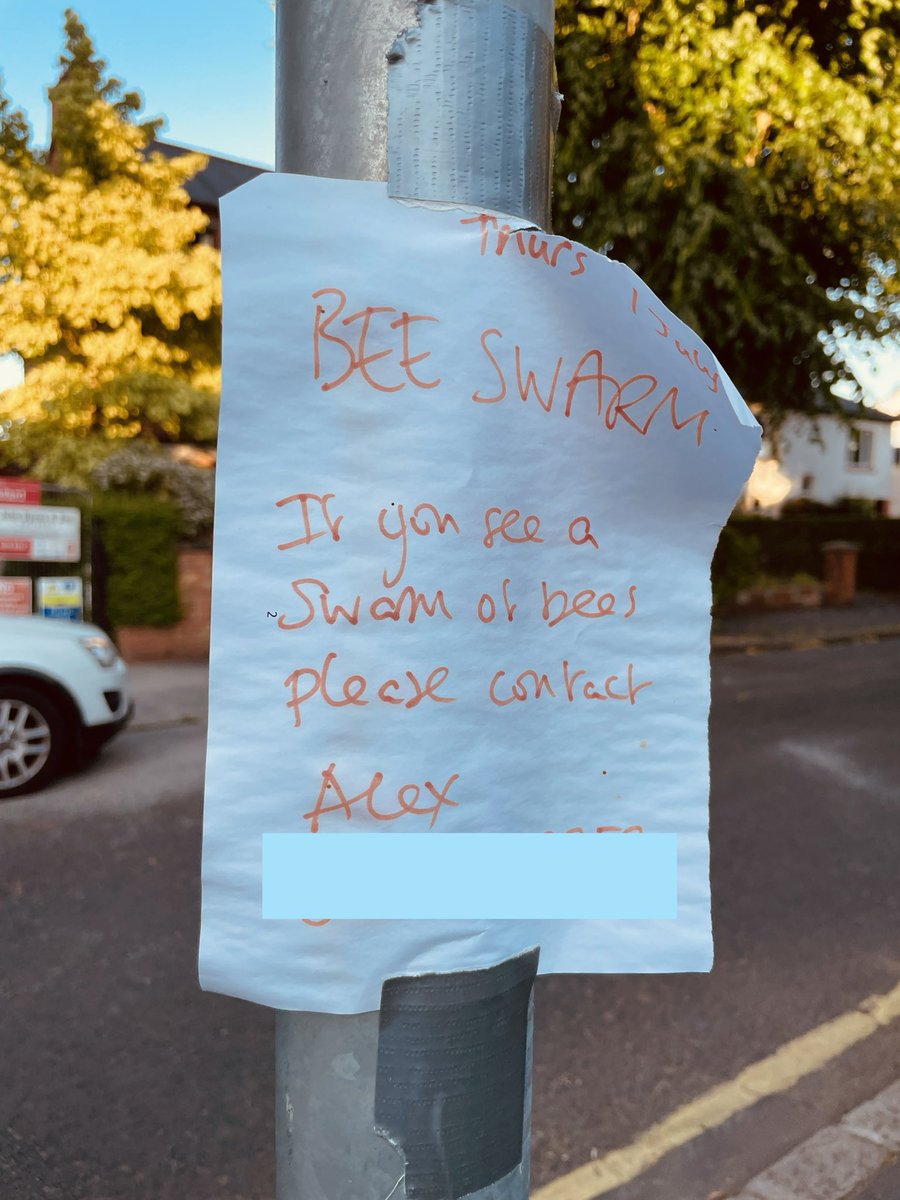 Thurs
1 July
BEE SWARM.
If you see a
Swarm of bees
please contact
Alex